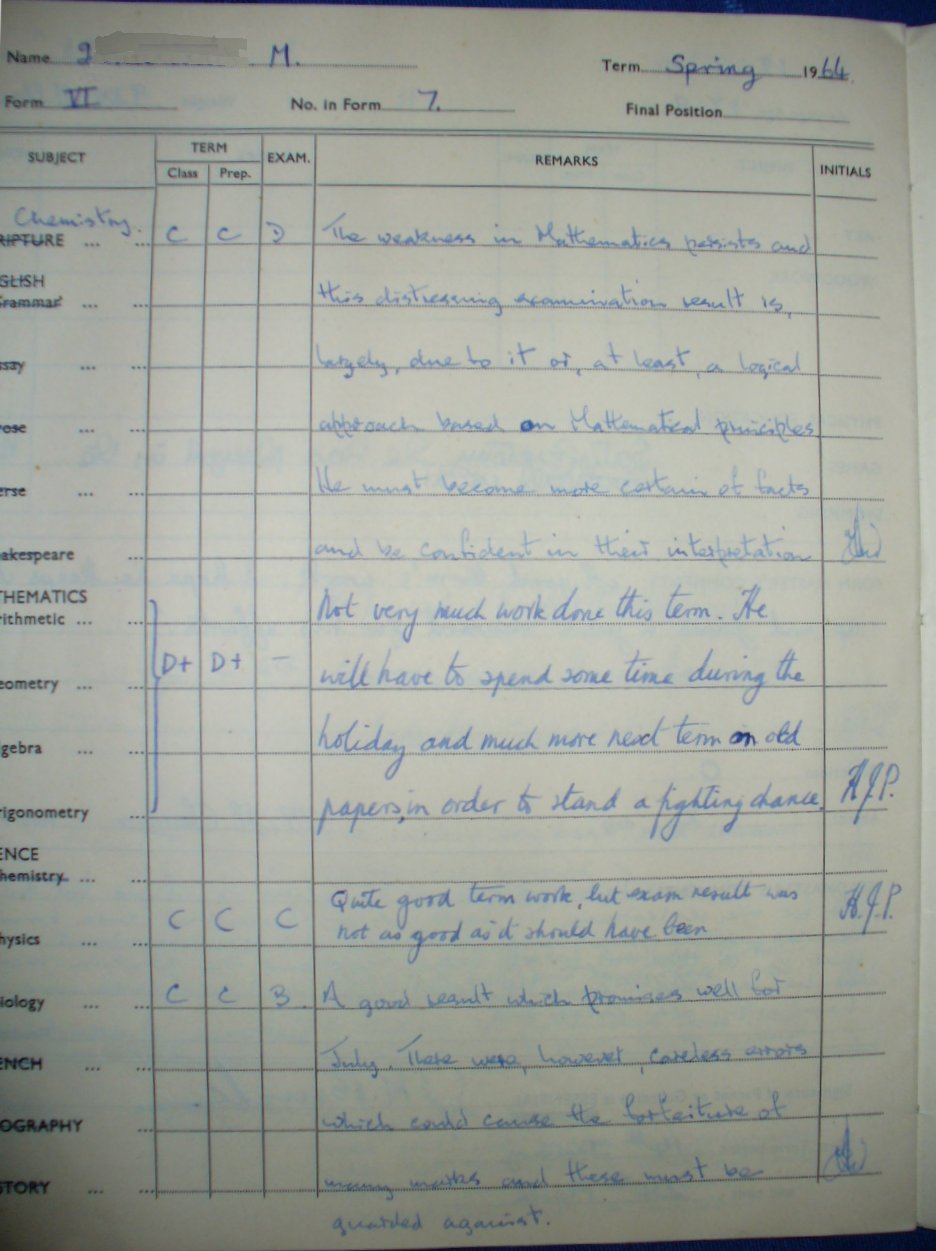 Name 2 M. Term Spring 1964.
Form VI No. in Form 7. Final Position
SUBJECT TERM EXAM. REMARKS INITIALS
Class Prep.
Chemistry.
RIPTURE ... ... C C D The weakness in Mathematics persists and
GLISH
Grammar ... ... this distressing examination result is,
ssay ... ... largely, due to it or, at least, a logical
rose ... ... approach based on Mathematical principles
erse ... ... He must become more certain of facts
akespeare ... and be confident in their interpretation
THEMATICS
rithmetic ... ... Not very much work done this term. He
D+ D+ –
eometry ... ... will have to spend some time during the
gebra ... ... holiday and much more next term on old
rigonometry ... papers, in order to stand a fighting chance. H.J.P.
ENCE
hemistry ... ...
C C C Quite good term work, but exam result was H.J.P.
hysics ... ... not as good as it should have been
iology ... ... C C B A good result which promises well for
ENCH ... ... July. There were, however, careless errors
OGRAPHY ... which could cause the forfeiture of
STORY ... ... many marks and these must be
guarded against.